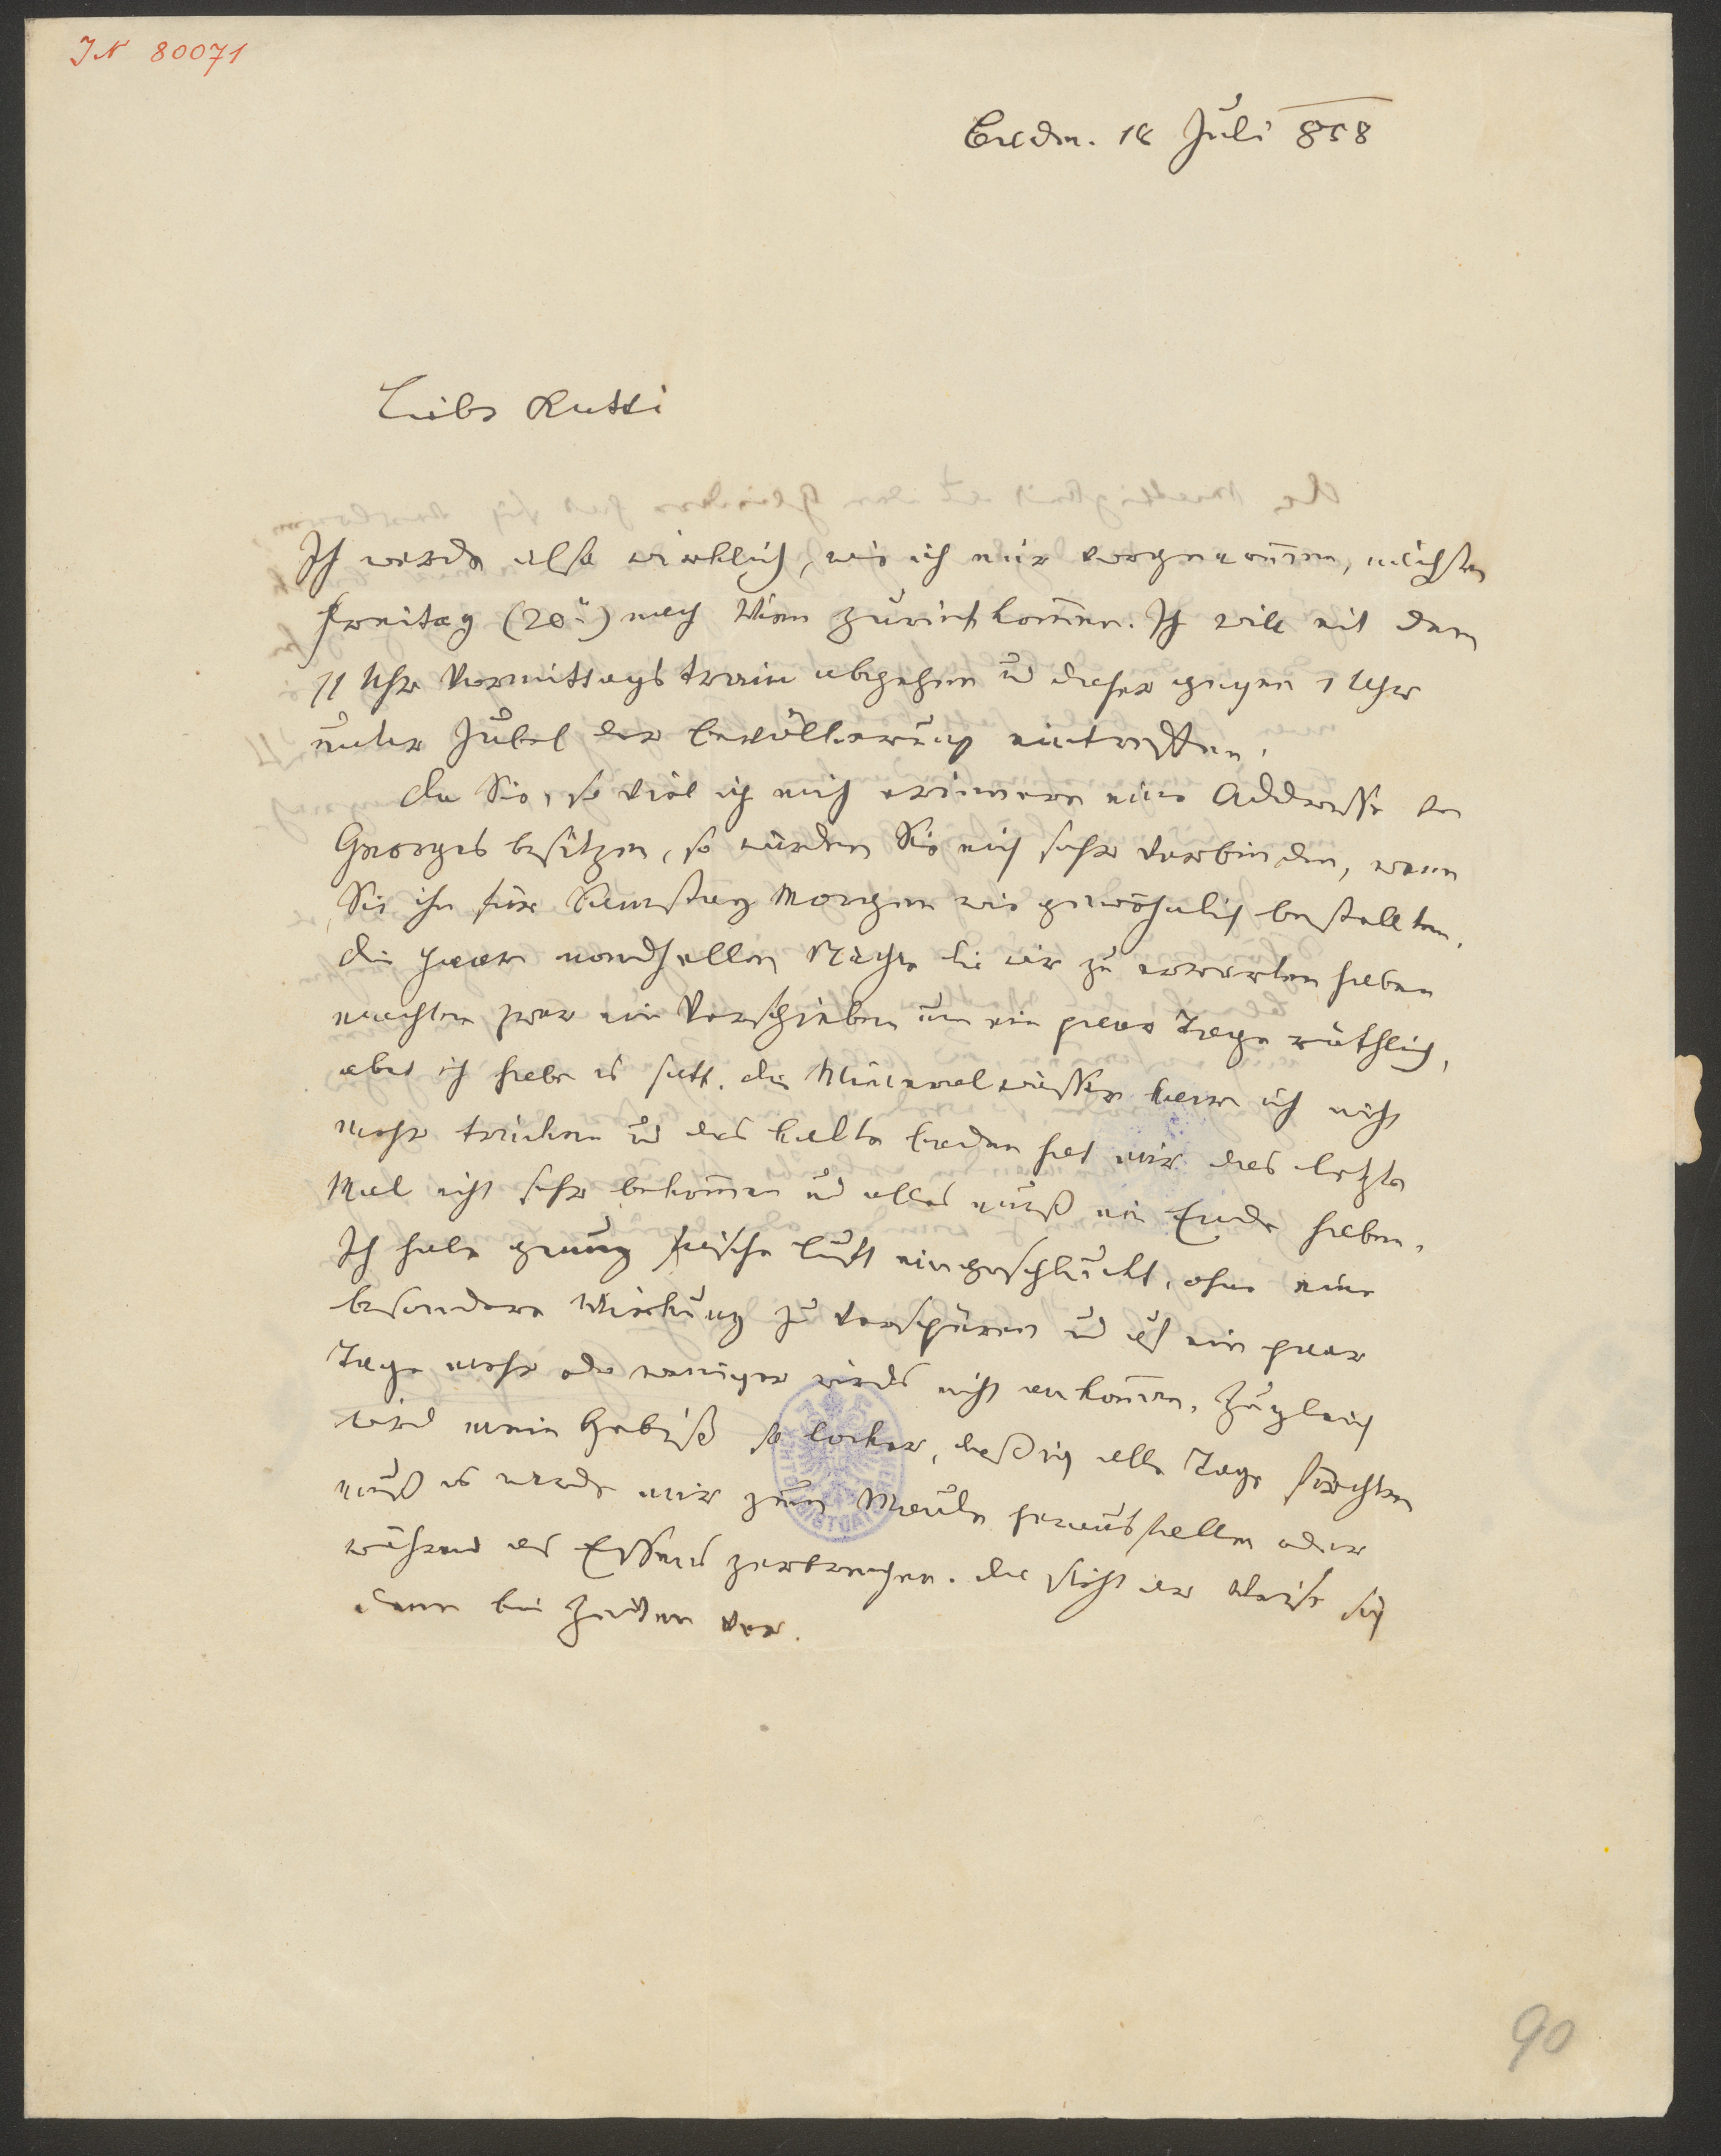 IN 80071
Baden. 18 Juli 858
Liebe Katti
Ich werde also wirklich, wie ich mir vorgenommen, nächsten
Freitag (20n) nach Wien zurückkommen. Ich will mit dem
11 Uhr Vormittags train abgehen und daher gegen 1 Uhr
unter Jubel der Bevölkerung eintreffen.
Da Sie, so viel ich mich erinnere eine Addresse des
Georges besitzen, so würden Sie mich sehr verbinden, wenn
Sie ihn für Samstag Morgen wie gewöhnlich bestellten.
Die paar mondhellen Nächte die wir zu erwarten haben
machten zwar ein Verschieben um ein paar Tage räthlich,
aber ich habe es satt. Die Mineralwässer kann ich nicht
mehr trinken und das kalte Baden hat mir das letzte
Mal nicht sehr bekommen und alles muß ein Ende haben.
Ich habe genug frische Luft eingeschluckt, ohne eine
besondere Wirkung zu verspüren und auf ein paar
Tage mehr oder weniger wirds nicht ankommen. Zugleich
wird mein Gebiß so locker, daß ich alle Tage fürchten
muß es werde mir zum Maule herausfallen oder
während des Essens zerbrechen. Da sieht der Weise sich
denn bei Zeiten vor.
90